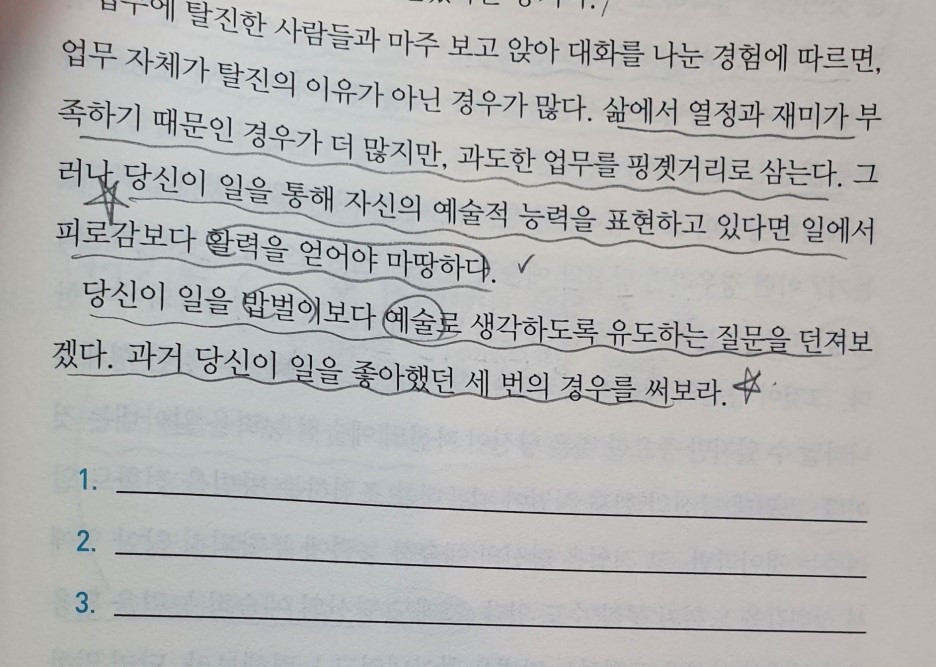 업무에 탈진한 사람들과 마주 보고 앉아 대화를 나눈 경험에 따르면,
업무 자체가 탈진의 이유가 아닌 경우가 많다. 삶에서 열정과 재미가 부
족하기 때문인 경우가 더 많지만, 과도한 업무를 핑곗거리로 삼는다. 그
러나 당신이 일을 통해 자신의 예술적 능력을 표현하고 있다면 일에서
피로감보다 활력을 얻어야 마땅하다.
당신이 일을 밥벌이보다 예술로 생각하도록 유도하는 질문을 던져보
겠다. 과거 당신이 일을 좋아했던 세 번의 경우를 써보라.
1.
2.
3.